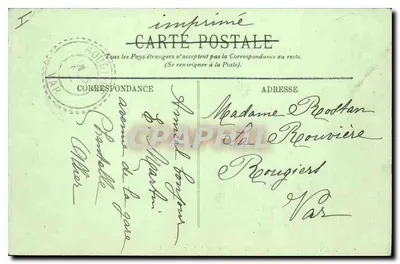 I
imprimé
CARTE POSTALE
Tous les Pays étrangers n'acceptent pas la Correspondance au recto.
(Se renseigner à la Poste).
CORRESPONDANCE
ADRESSE
Amical bonjour
E. Martin
avenue de la gare
Chantelle
Allier
Madame Rostan
La Rouvière
Rougiers
Var
CARTE
VAR